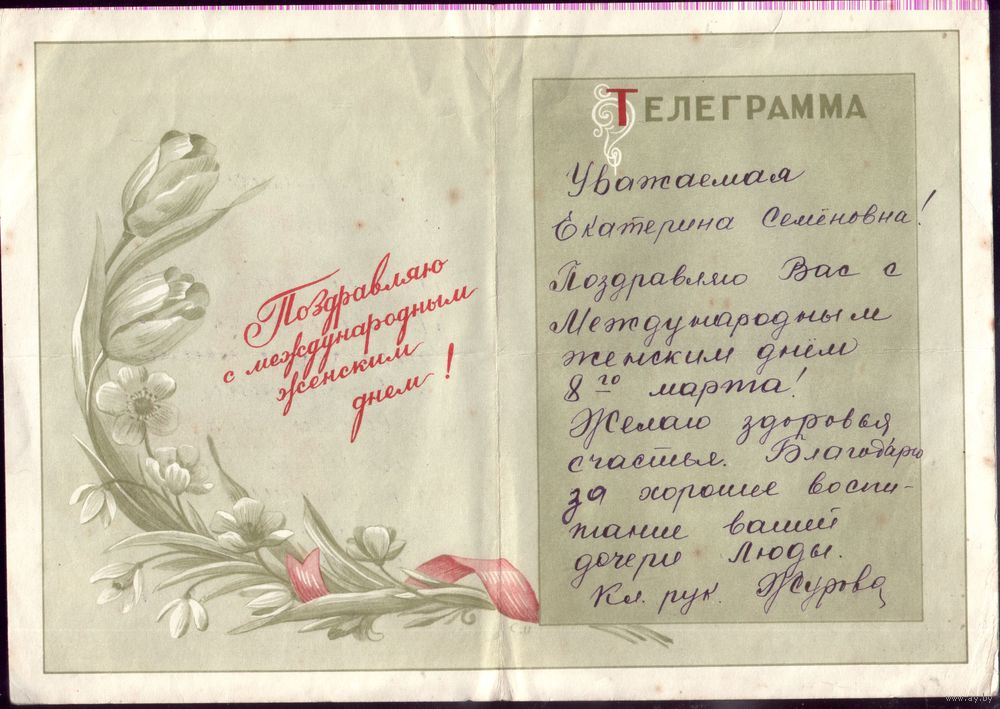 Поздравляю
с международным
женским
днем!
ТЕЛЕГРАММА
Уважаемая
Екатерина Семёновна!
Поздравляю Вас с
Международным
женским днём
8го марта!
Желаю здоровья
счастья. Благодарю
за хорошие воспи-
тание вашей
дочери Люды.
Кл. рук. Журова
www.ay.by